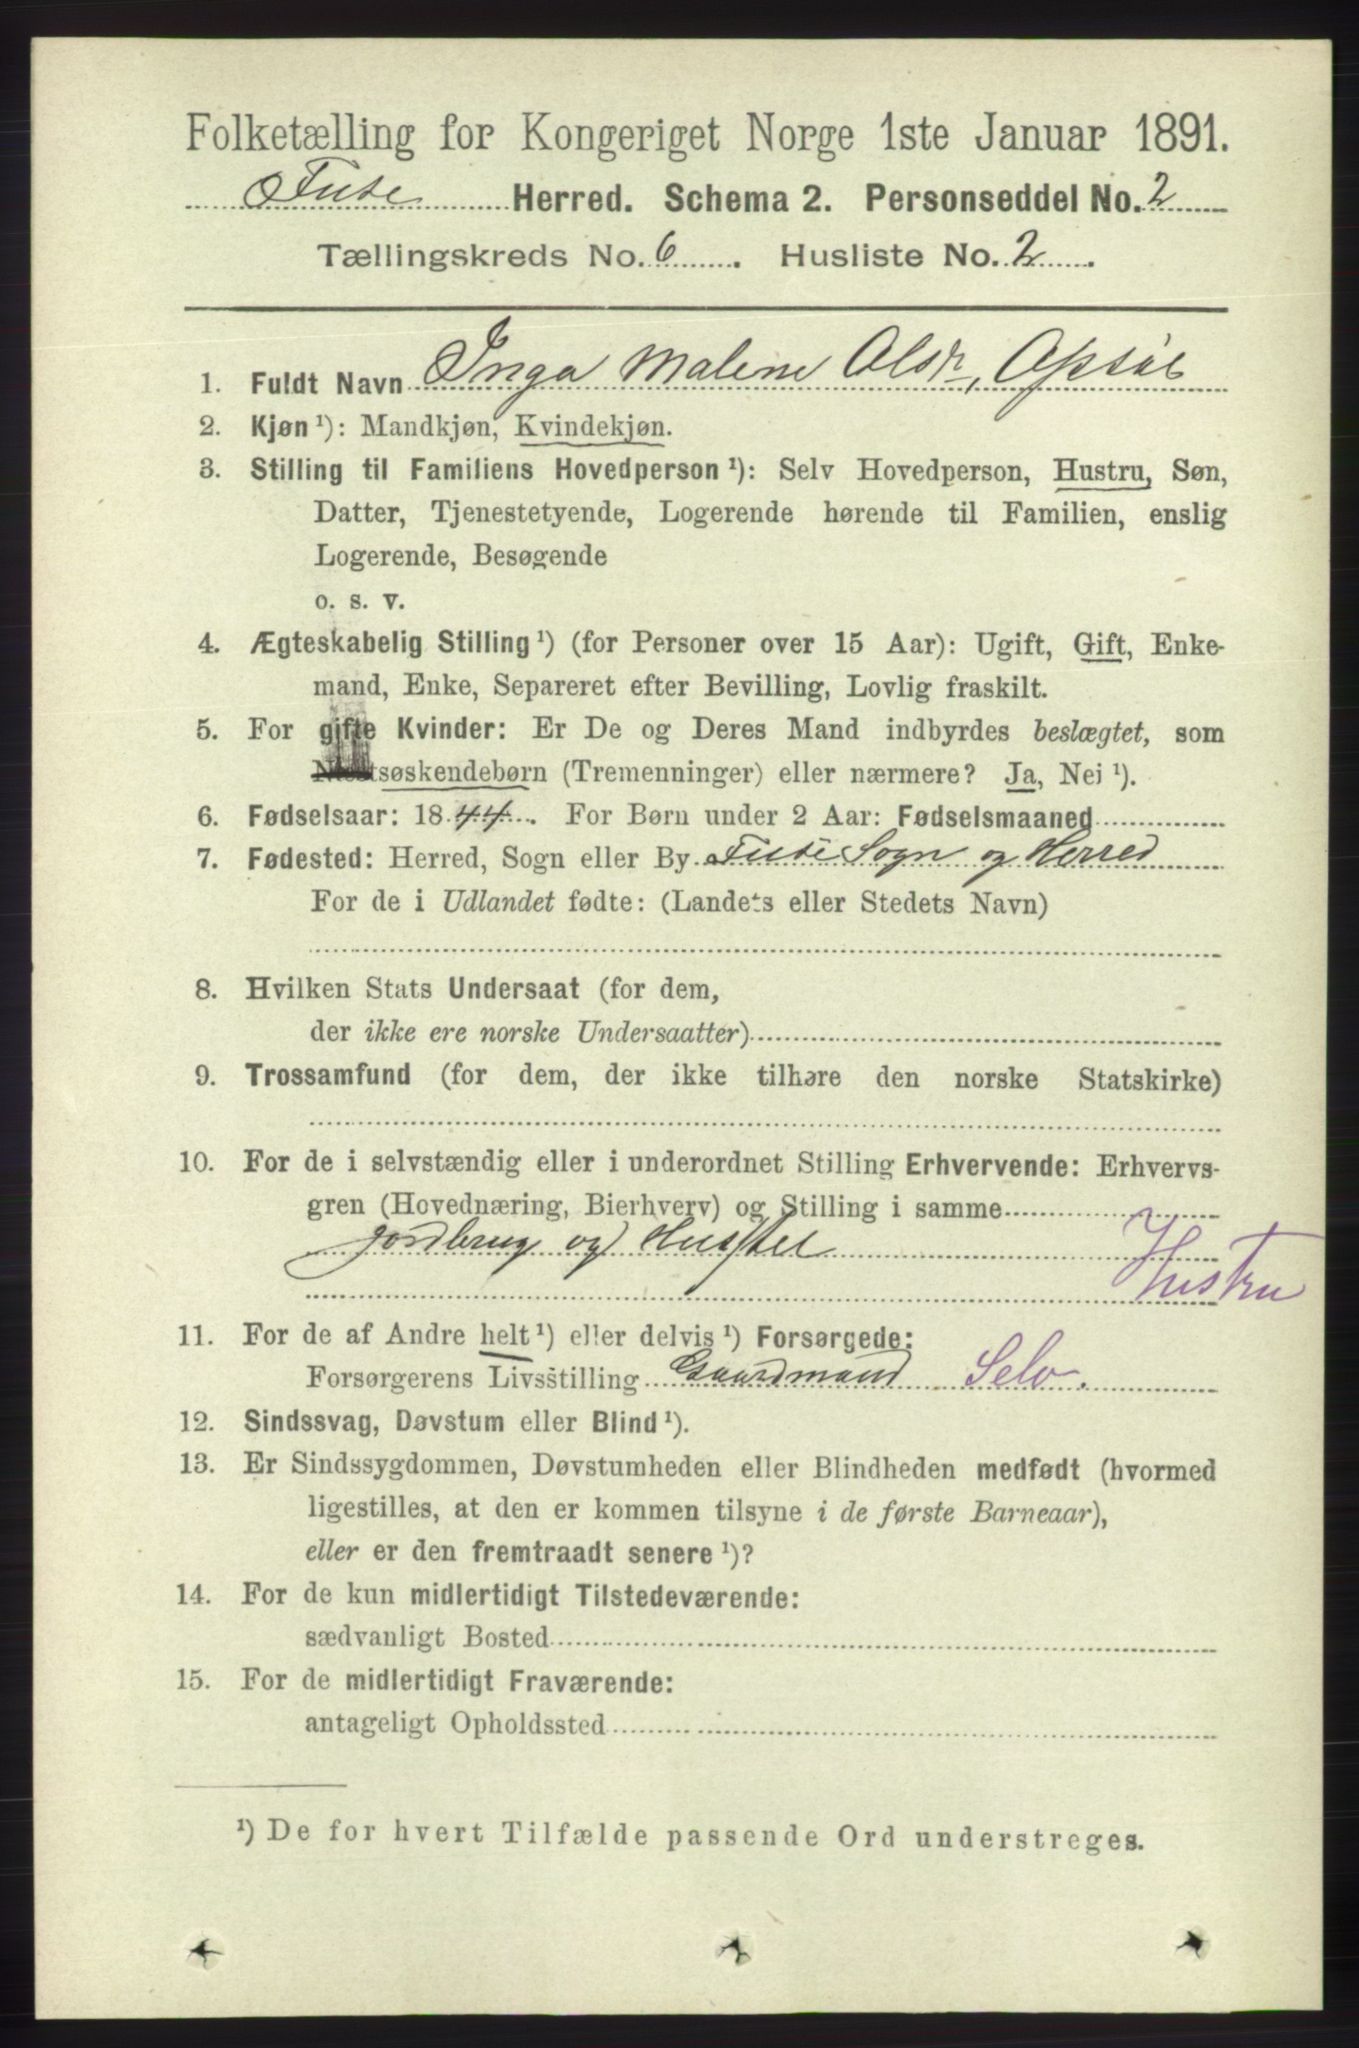 Folketælling for Kongeriget Norge 1ste Januar 1891.
Fuse Herred. Schema 2. Personseddel No. 2
Tællingskreds No. 6. Husliste No. 2.
1. Fuldt Navn Inga Malene Olsdr, Opsøl
2. Kjøn ¹): Mandkjøn, Kvindekjøn.
3. Stilling til Familiens Hovedperson ¹): Selv Hovedperson, Hustru, Søn,
Datter, Tjenestetyende, Logerende hørende til Familien, enslig
Logerende, Besøgende
o. s. v.
4. Ægteskabelig Stilling ¹) (for Personer over 15 Aar): Ugift, Gift, Enke-
mand, Enke, Separeret efter Bevilling, Lovlig fraskilt.
5. For gifte Kvinder: Er De og Deres Mand indbyrdes beslægtet, som
søskendebørn (Tremenninger) eller nærmere? Ja, Nei ¹).
6. Fødselsaar: 1844. For Børn under 2 Aar: Fødselsmaaned
7. Fødested: Herred, Sogn eller By Fuse Sogn og Herred
For de i Udlandet fødte: (Landets eller Stedets Navn)
8. Hvilken Stats Undersaat (for dem,
der ikke ere norske Undersaatter)
9. Trossamfund (for dem, der ikke tilhøre den norske Statskirke)
10. For de i selvstændig eller i underordnet Stilling Erhvervende: Erhvervs-
gren (Hovednæring, Bierhverv) og Stilling i samme
jordbrug og Husstel
Hustru
11. For de af Andre helt ¹) eller delvis ¹) Forsørgede:
Forsørgerens Livsstilling Gaardmand Selv.
12. Sindssvag, Døvstum eller Blind ¹).
13. Er Sindssygdommen, Døvstumheden eller Blindheden medfødt (hvormed
ligestilles, at den er kommen tilsyne i de første Barneaar),
eller er den fremtraadt senere ¹)?
14. For de kun midlertidigt Tilstedeværende:
sædvanligt Bosted
15. For de midlertidigt Fraværende:
antageligt Opholdssted
¹) De for hvert Tilfælde passende Ord understreges.